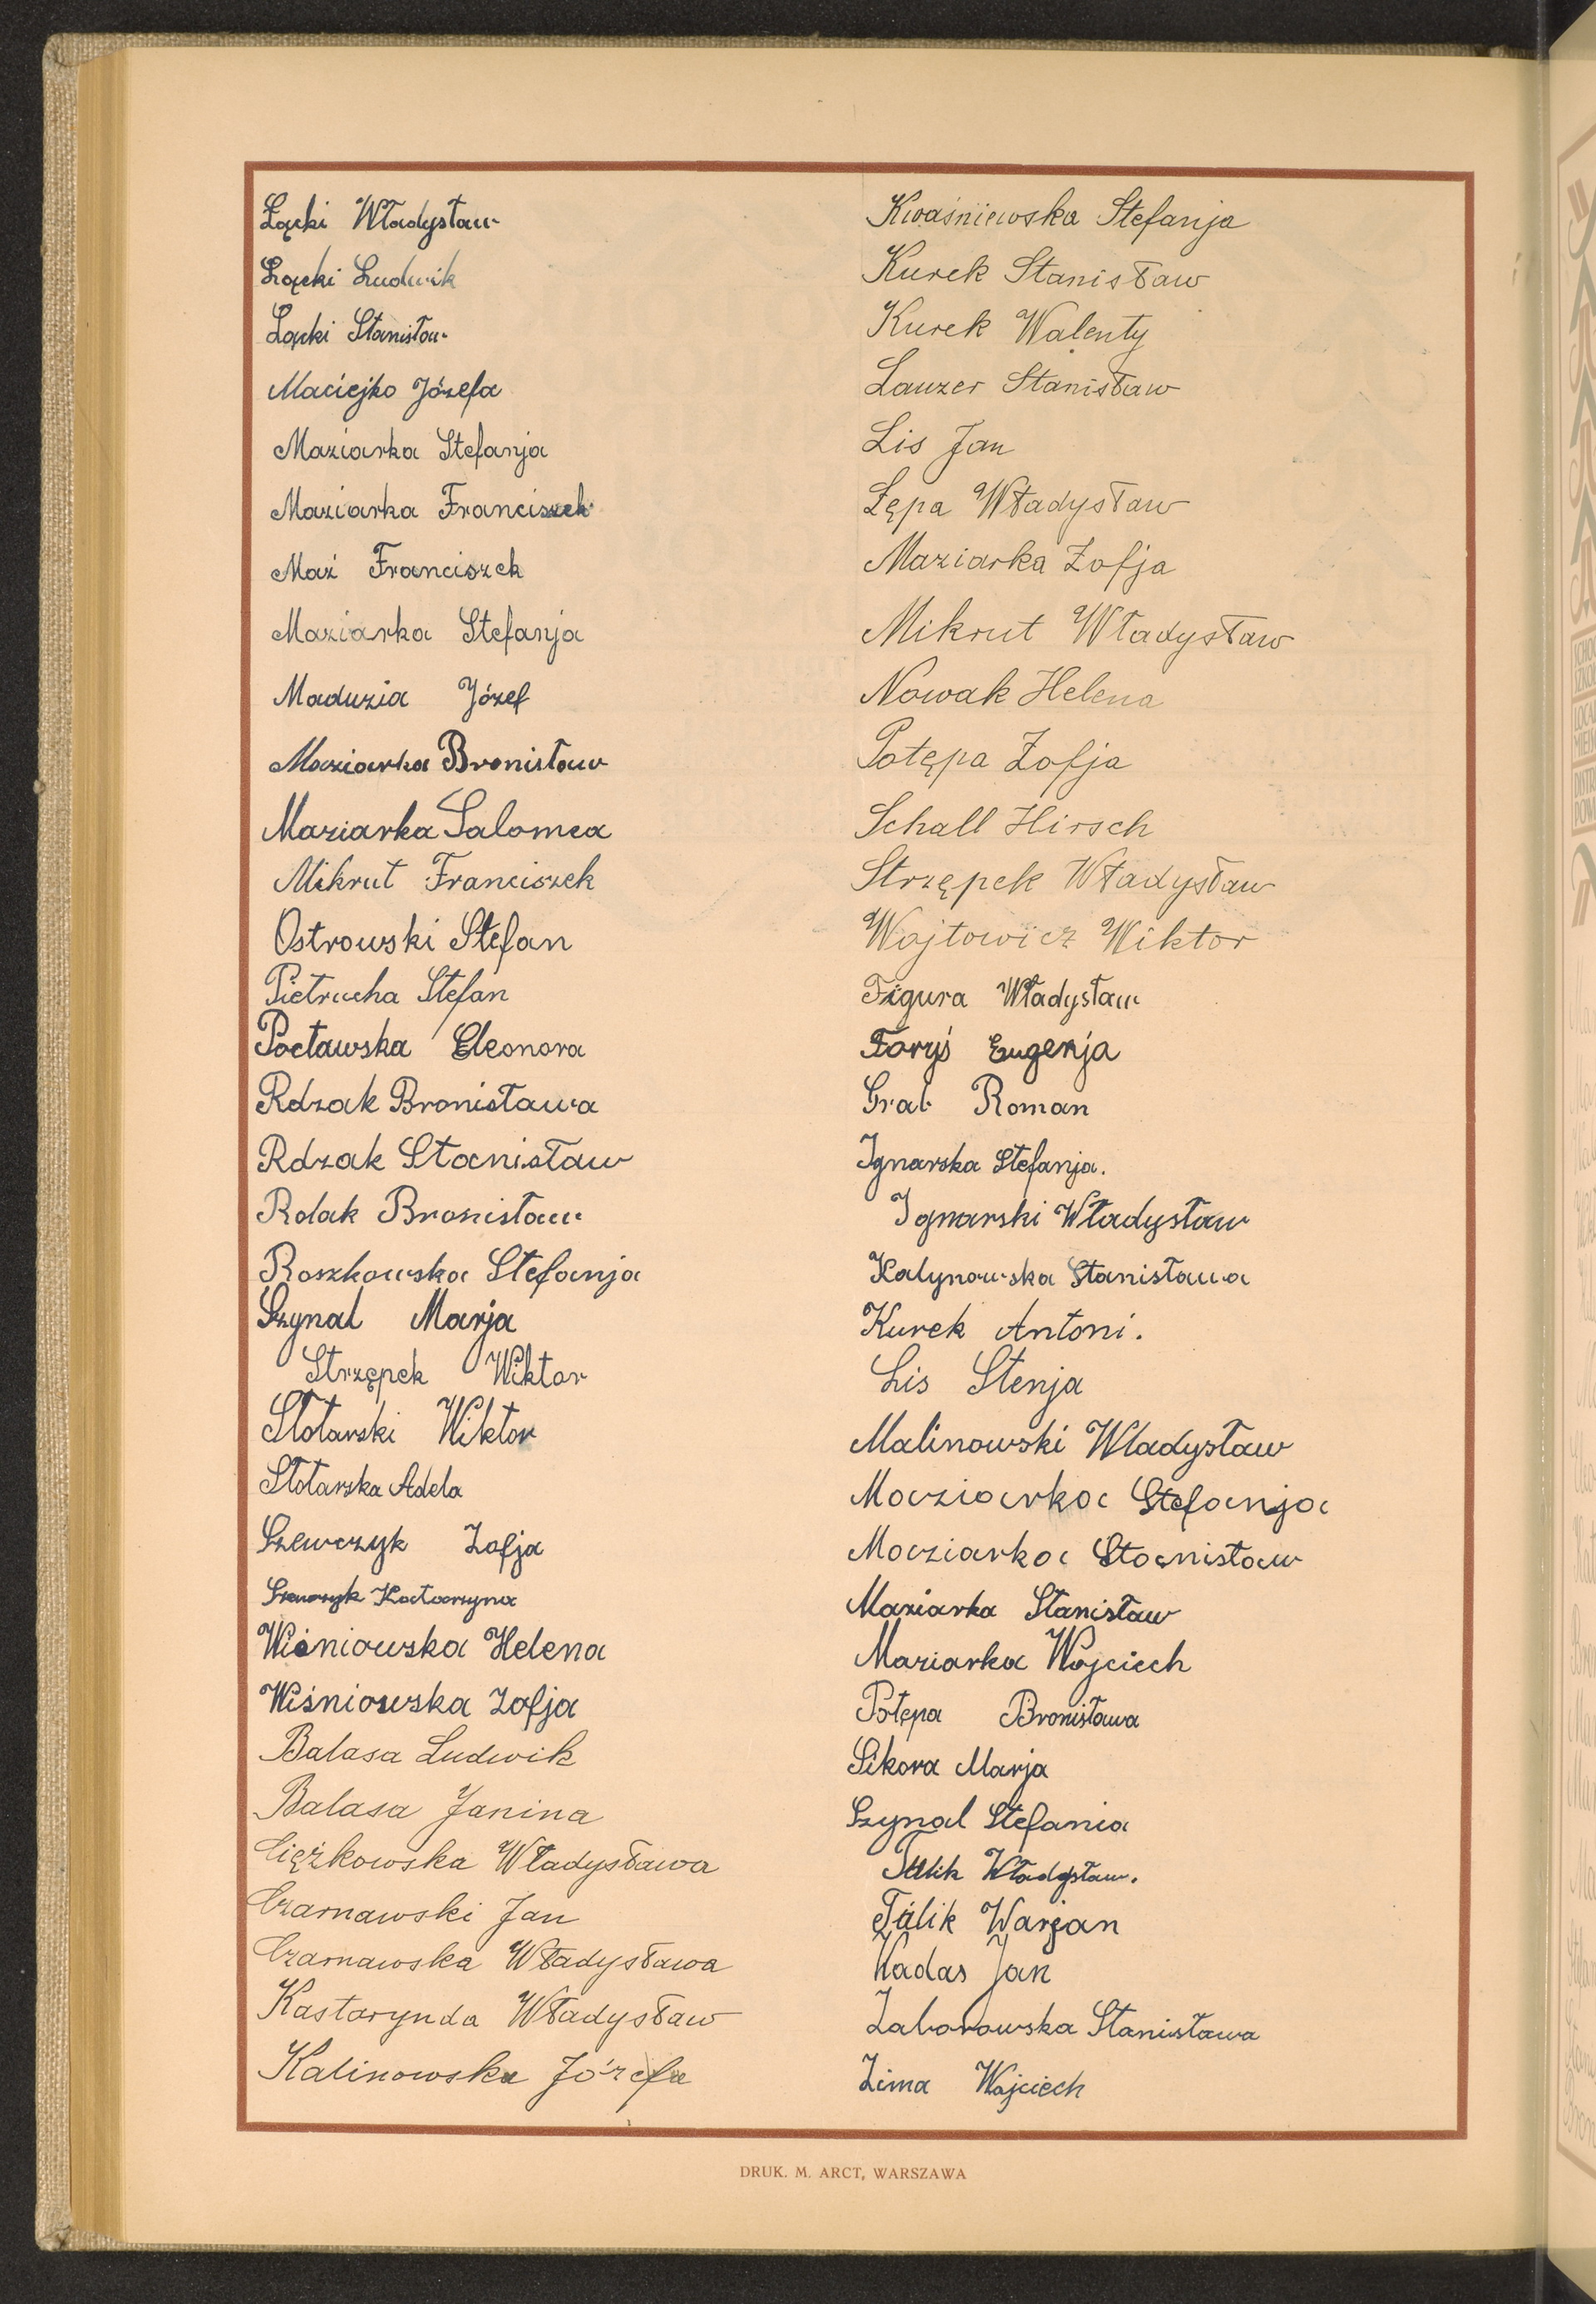 Łącki Władysław
Łącki Ludwik
Łącki Stanisław
Maciejko Józefa
Maziarka Stefanja
Maziarka Franciszek
Maź Franciszek
Maziarka Stefanja
Maduzia Józef
Maziarka Bronisław
Maziarka Salomea
Mikrut Franciszek
Ostrowski Stefan
Pietrucha Stefan
Pocławska Eleonora
Rdzak Bronisława
Rdzak Stanisław
Rdak Bronisław
Roszkowska Stefanja
Szynal Marja
Strzępek Wiktor
Stolarski Wiktor
Stolarska Adela
Szewczyk Zofja
Szewczyk Katarzyna
Wiśniowska Helena
Wiśniowska Zofja
Balasa Ludwik
Balasa Janina
Ciężkowska Władysława
Czarnawski Jan
Czarnawska Władysława
Kastarynda Władysław
Kalinowska Józefa
Kwaśniewska Stefanja
Kurek Stanisław
Kurek Walenty
Lauzer Stanisław
Lis Jan
Łępa Władysław
Maziarka Zofja
Mikrut Władysław
Nowak Helena
Potępa Zofja
Schall Hirsch
Strzępek Władysław
Wojtowicz Wiktor
Figura Władysław
Foryś Eugenja
Grab Roman
Ignarska Stefanja.
Ignarski Władysław
Kalynowska Stanisława
Kurek Antoni.
Lis Stenja
Malinowski Wladysław
Maziarka Stefanja
Maziarka Stanisław
Maziarka Stanisław
Maziarka Wojciech
Potępa Bronisława
Sikora Marja
Szynal Stefania
Talik Władysław.
Talik Warjan
Wadas Jan
Zaborowska Stanisława
Zima Wojciech
DRUK. M. ARCT, WARSZAWA